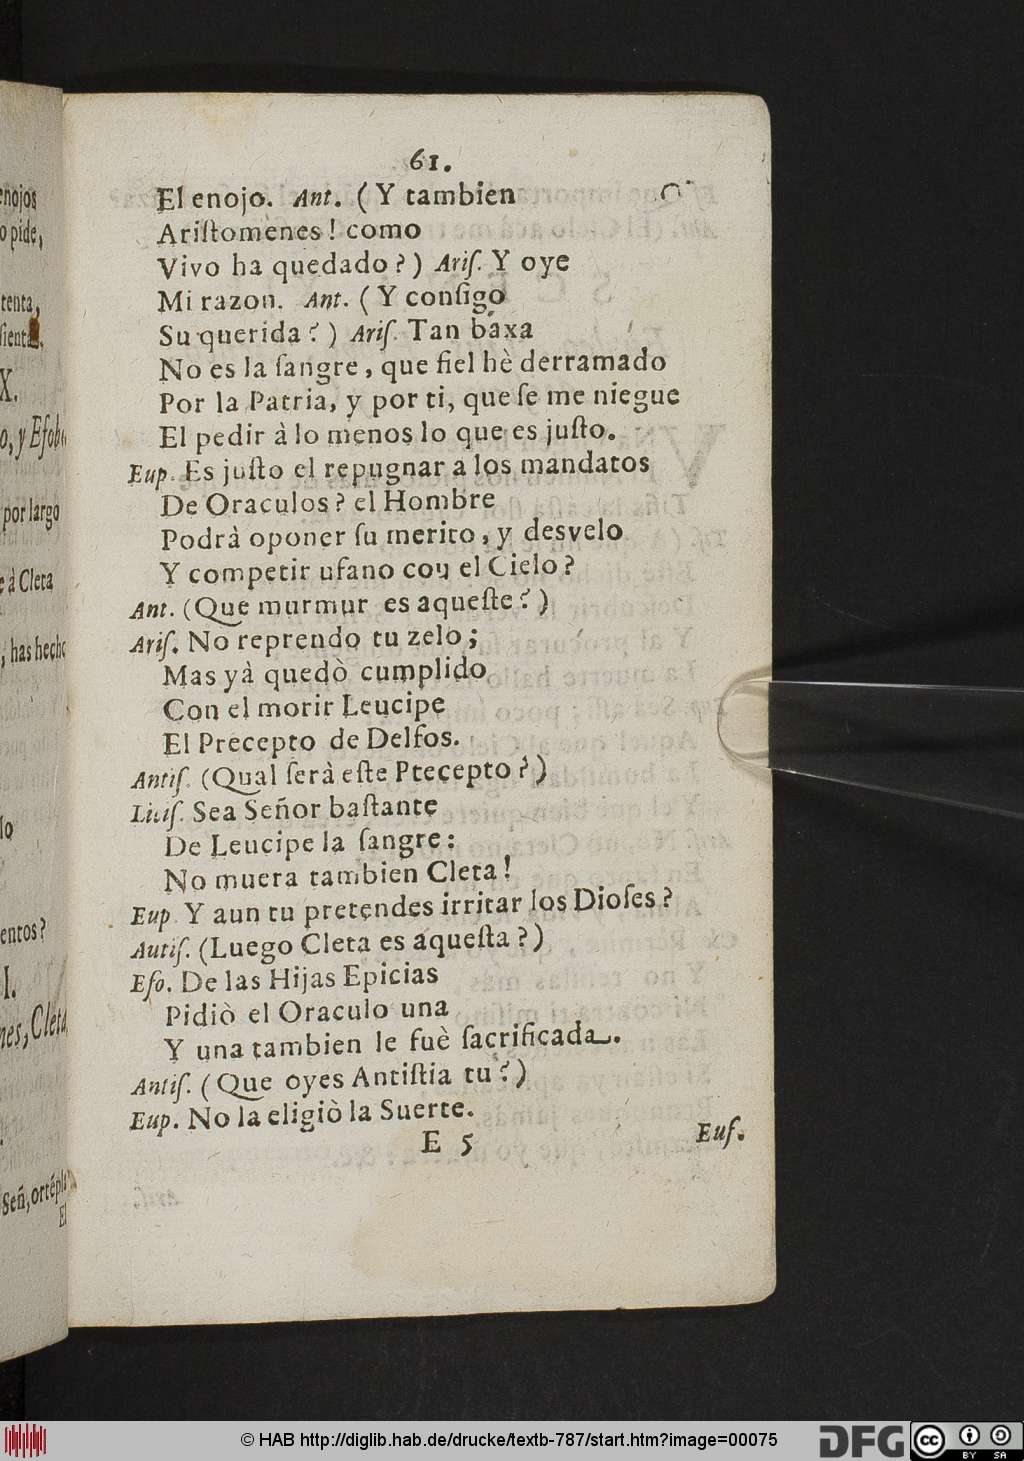 enojos
o pide,
tenta,
ſienta.
X.
o, y Eſobo
por largo
e à Cleta
, has hecho
lo
entos?
I.
nes, Cleta,
Señ, or té
El
61.
El enojo. Ant. ( Y tambien
Ariſtomènes! como
Vivo ha quedado?) Ariſ. Y oye
Mi razon. Ant. ( Y conſigo
Su querida?) Ariſ. Tan báxa
No es la ſangre, que fiel hè derramado
Por la Patria, y por ti, que ſe me niegue
El pedir à lo menos lo que es juſto.
Eup. Es juſto el repugnar a los mandatos
De Oraculos? el Hombre
Podrà oponer ſu merito, y desvelo
Y competir ufano cou el Cielo?
Ant. (Que murmur es aqueſte?)
Ariſ. No reprendo tu zelo;
Mas yà quedò cumplido
Con el morir Leucipe
El Precepto de Delfos.
Antiſ. (Qual ſerà eſte Ptecepto?)
Liciſ. Sea Señor baſtante
De Leucipe la ſangre:
No muera tambien Cleta!
Eup. Y aun tu pretendes irritar los Dioſes?
Autiſ. (Luego Cleta es aqueſta?)
Eſo. De las Hijas Epicias
Pidiò el Oraculo una
Y una tambien le fuè ſacrificada.
Antiſ. (Que oyes Antiſtia tu?)
Eup. No la eligiò la Suerte.
E 5
Euſ.
© HAB http://diglib.hab.de/drucke/textb-787/start.htm?image=00075
DFG
cc
BY SA